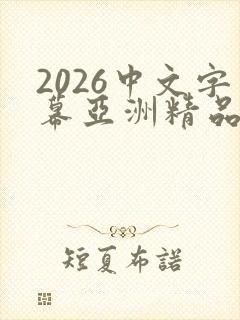 2026中文字
幕亞洲精品
短夏布諾